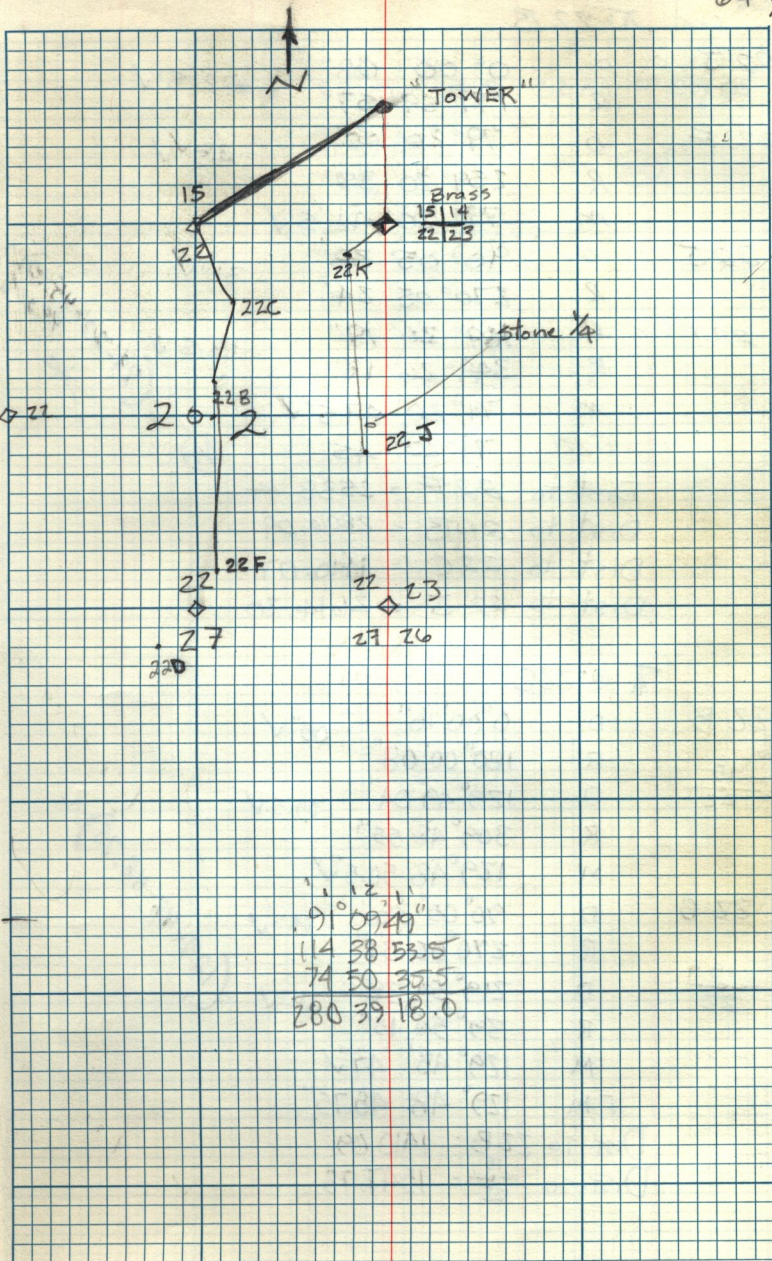 N
"TOWER"
15
22
Brass
15 | 14
22 | 23
22K
22C
stone 1/4
22
22B
2 2
22 J
22F
22
27
22D
22 23
27 26
91° 09' 49"
114 38 53.5
74 50 35.5
280 39 18.0